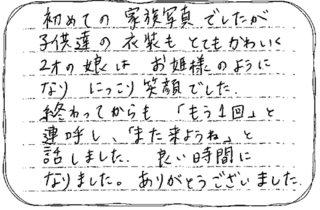 初めての 家族写真 でしたが
子供達の 衣装も とてもかわいく
2才の娘は お姫様のように
なり にっこり 笑顔でした.
終わってからも 「もう1回」と
連呼し、「また来ようね」と
話しました. 良い時間に
なりました。ありがとうございました.